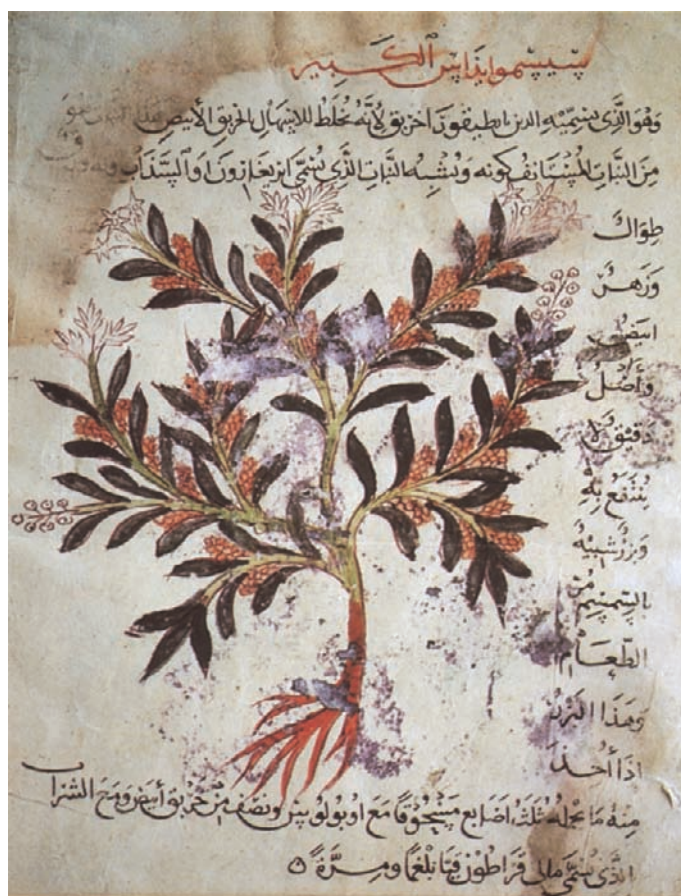 سيسموايداس الكبير
وهو الذي يسميه الذين بانطيقون اخربق لأنه يخلط للاسهال الخربق الأبيض هذا النبات هو
من النبات المستانف كونه ويشبه النبات الذي يسمى ايريغارون او السذاب وله ورق
طوال
وزهر
ابيض
وأصل
دقيق لا
ينتفع به
وبزر شبيه
بالسمسم من
الطعام
وهذا البزر
اذا أخذ
منه ما يحمله ثلث اصابع مسحوقا مع اوبولوس ونصف من خربق أبيض ومع الشراب
الذي يسمى مالي قراطون قيا بلغما ومرة